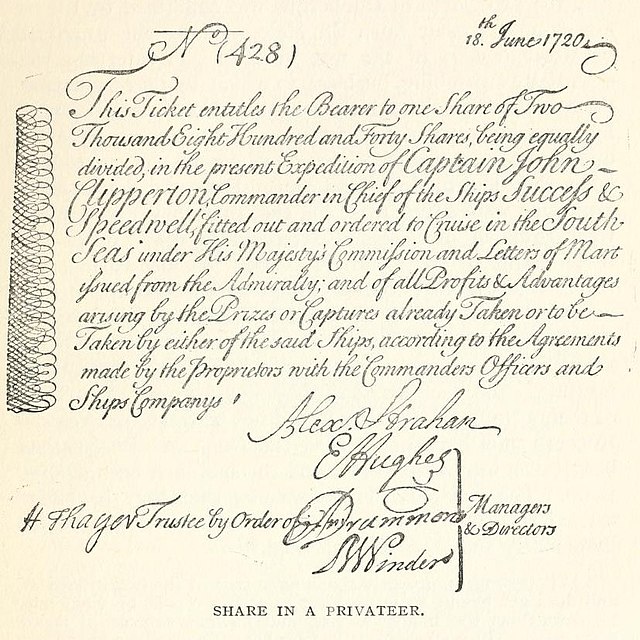 No (428)
18.th June 1720
This Ticket entitles the Bearer to one Share of Two
Thousand Eight Hundred and Forty Shares, being equally
divided, in the present Expedition of Captain John
Clipperton, Commander in Chief of the Ships Success &
Speedwell, fitted out and ordered to Cruise in the South
Seas under His Majesty's Commission and Letters of Mart
issued from the Admiralty; and of all Profits & Advantages
arising by the Prizes or Captures already Taken or to be
Taken by either of the said Ships, according to the Agreements
made by the Proprietors with the Commanders Officers and
Ships Companys
Alex. Strahan
E Hughes
H Thayer Trustee by Order of
Managers
& Directors
Winder
SHARE IN A PRIVATEER.